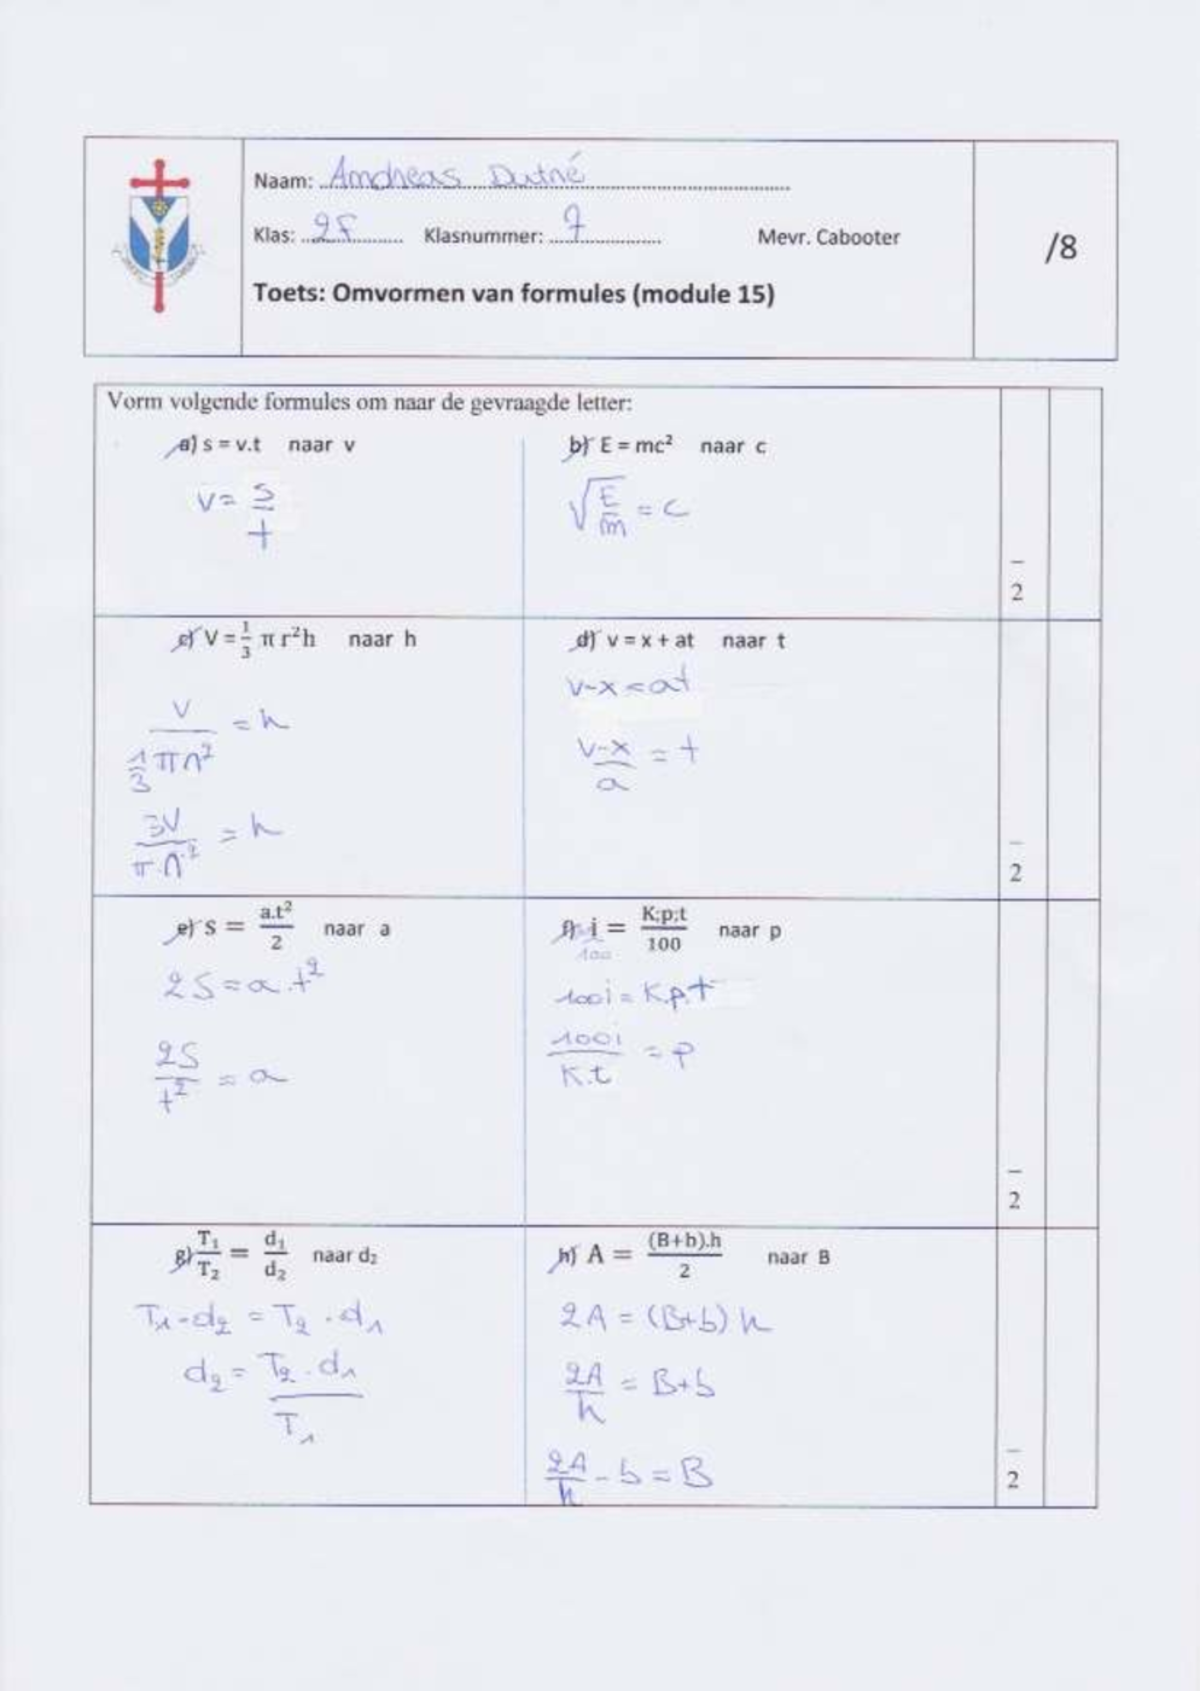 Naam: Andreas Dutné
Klas: 2F Klasnummer: 7 Mevr. Cabooter
/8
Toets: Omvormen van formules (module 15)
Vorm volgende formules om naar de gevraagde letter:
a) s = v.t naar v
v = s/t
b) E = mc² naar c
√(E/m) = c
2
c) V = 1/3 π r²h naar h
V / (1/3 π r²) = h
3V / (π.r²) = h
d) v = x + at naar t
v-x = at
(v-x)/a = t
2
e) s = a.t²/2 naar a
2S = a.t²
2S/t² = a
f) i = K;p;t/100 naar p
100
100i = K.p.t
100i/K.t = p
2
g) T₁/T₂ = d₁/d₂ naar d₂
T₁.d₂ = T₂.d₁
d₂ = T₂.d₁/T₁
h) A = (B+b).h/2 naar B
2A = (B+b) h
2A/h = B+b
2A/h - b = B
2